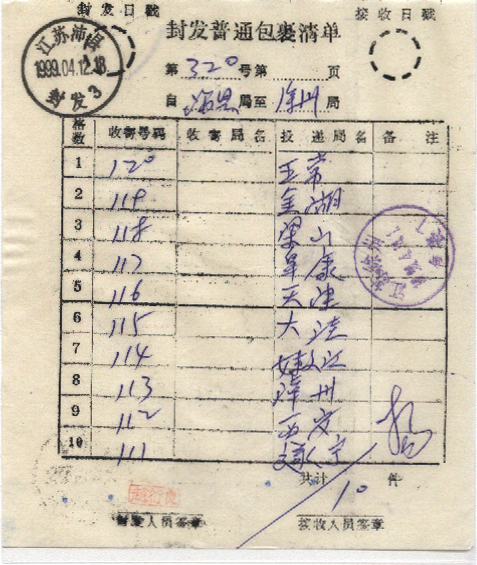 封发日戳
接收日戳
封发普通包裹清单
江苏沛县
1999.04.12.18
封发3
第320号第 页
自沛县局至徐州局
格数 收寄号码 收寄局名 投递局名 备注
1 120
2 119 金湖
3 118 梁山
4 117
5 116 天津
6 115 大洼
7 114
8 113 漳州
9 112 西安
10 111
共计 10 件
封发人员签章
接收人员签章